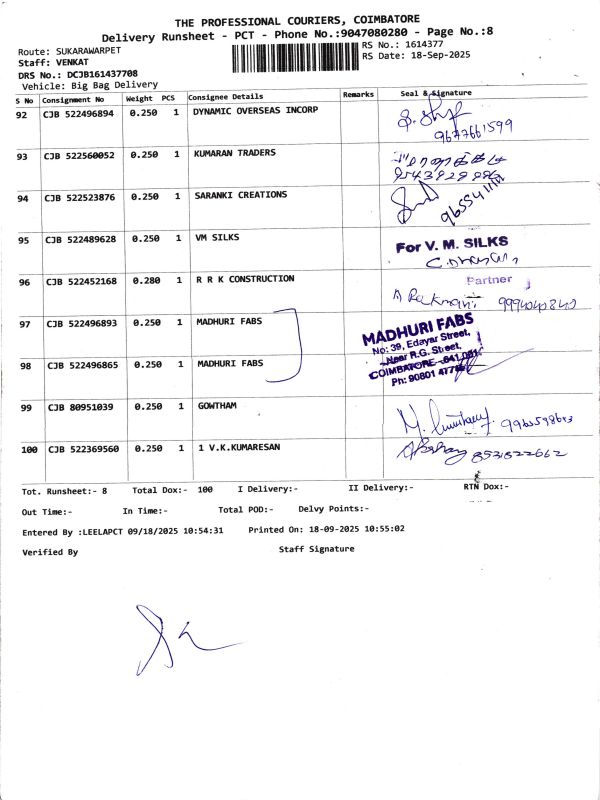 THE PROFESSIONAL COURIERS, COIMBATORE
Delivery Runsheet - PCT - Phone No.:9047080280 - Page No.:8
Route: SUKARAWARPET
RS No.: 1614377
Staff: VENKAT
RS Date: 18-Sep-2025
DRS No.: DCJB161437708
Vehicle: Big Bag Delivery
S No Consignment No Weight PCS Consignee Details Remarks Seal & Signature
92 CJB 522496894 0.250 1 DYNAMIC OVERSEAS INCORP
9677661599
93 CJB 522560052 0.250 1 KUMARAN TRADERS
94 CJB 522523876 0.250 1 SARANKI CREATIONS
95 CJB 522489628 0.250 1 VM SILKS For V. M. SILKS
Partner
96 CJB 522452168 0.280 1 R R K CONSTRUCTION
97 CJB 522496893 0.250 1 MADHURI FABS
98 CJB 522496865 0.250 1 MADHURI FABS
MADHURI FABS
No: 39, Edayar Street,
Near R.G. Street,
COIMBATORE - 641 001.
99 CJB 80951039 0.250 1 GOWTHAM
100 CJB 522369560 0.250 1 1 V.K.KUMARESAN 8531822662
Tot. Runsheet:- 8 Total Dox:- 100 I Delivery:- II Delivery:- RTN Dox:-
Out Time:- In Time:- Total POD:- Delvy Points:-
Entered By :LEELAPCT 09/18/2025 10:54:31 Printed On: 18-09-2025 10:55:02
Verified By Staff Signature